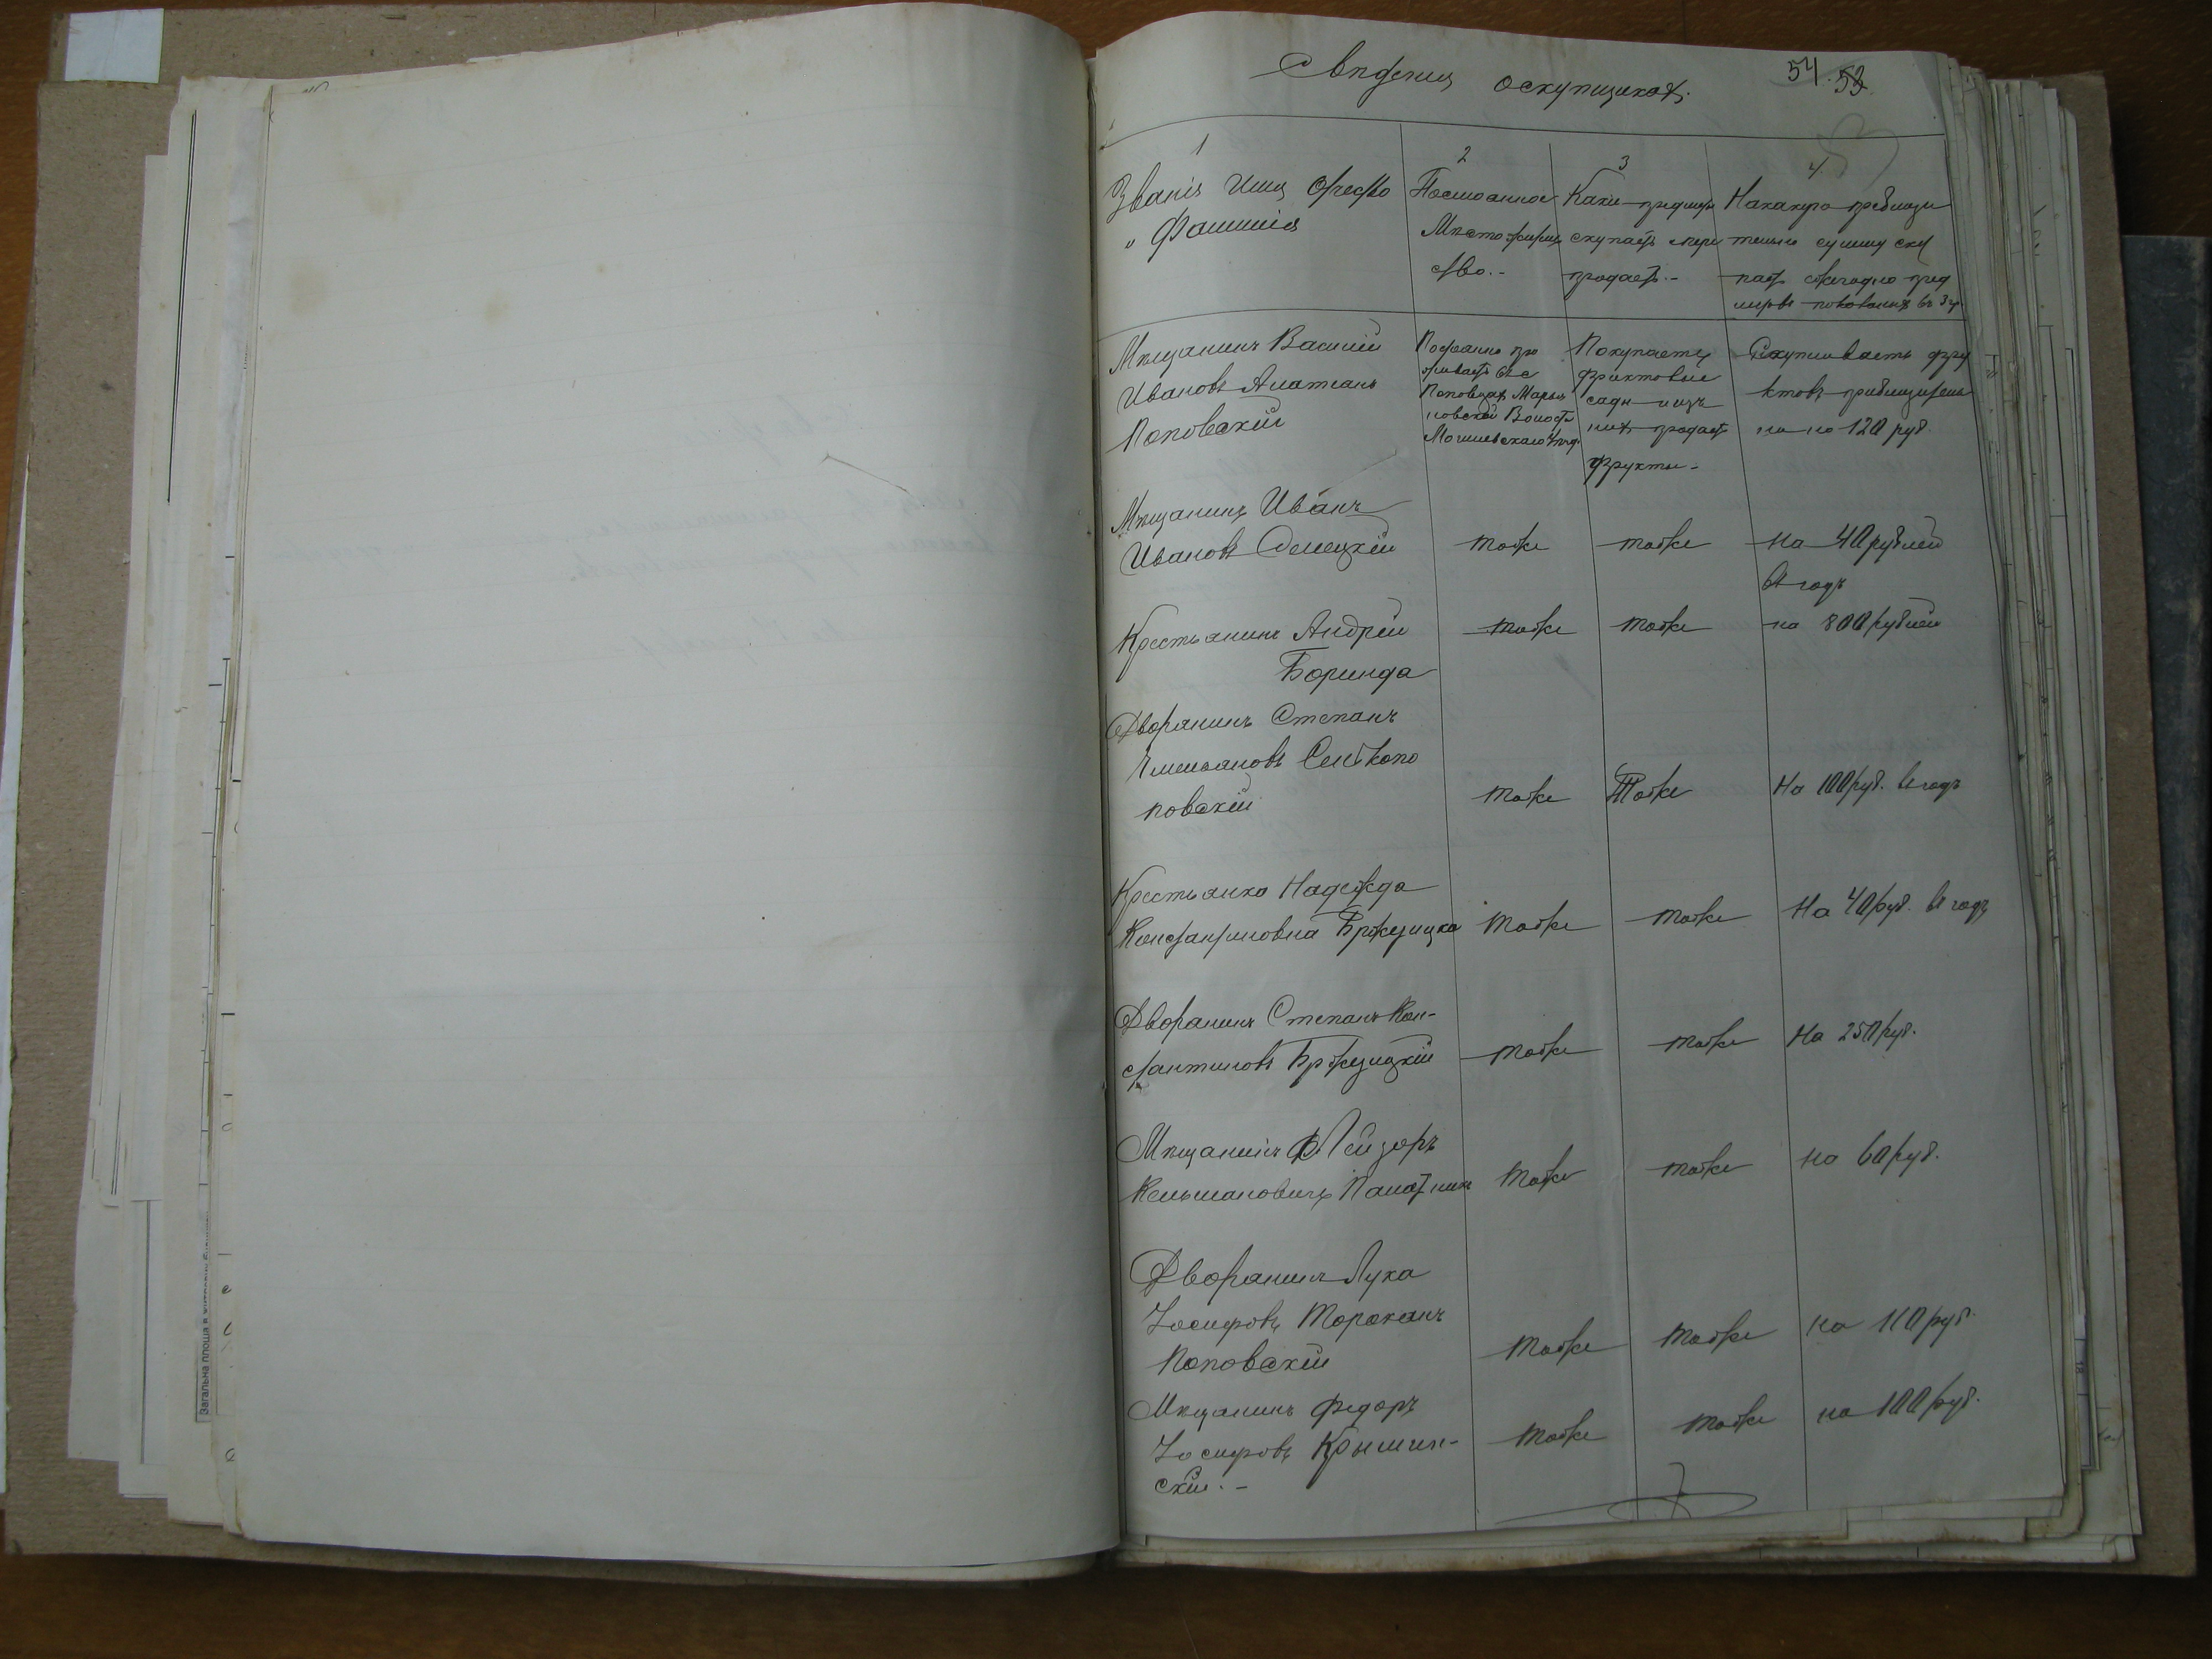 Сведения о скупщикахъ.
54. 53
1
2
3
4
Званія Имя Отчество
и Фамилія
Постоянное
Место житель
ство.-
Какие предметы
скупаетъ и пере
продаетъ.-
На какую приблизи
тельно сумму ску
паетъ ежегодно пред
меты поковання въ 3 гр.
Мещанинъ Василій
Ивановъ
Поповскій
Постоянно про
живаетъ въ с
Поповцахъ Марья
новской Волости
Могилевскаго уезд.
Покупаетъ
фруктовые
сады и изъ
нихъ продаетъ
фрукты-
Скупливаетъ фру
ктовъ приблизитель
но на 120 руб.
Мещанинъ Иванъ
Ивановъ
тоже
тоже
на 40 рублей
въ годъ
Крестьянинъ Андрей
Боринда
тоже
тоже
на 800 рублей
Дворянинъ Степанъ
Емельяновъ
повскій
тоже
Тоже
На 100 руб. въ годъ
Крестьянка Надежда
Константиновна Бржезицка
тоже
тоже
На 40 руб. въ годъ
Дворанинъ Степанъ Кон-
стантиновъ Бржезицкій
тоже
тоже
На 250 руб.
Мещанинъ Лейзоръ
Кельмановичъ Палатникъ
тоже
тоже
на 60 руб.
Дворанинъ Лука
Іосифовъ Тороканъ
Поповскій
тоже
тоже
на 110 руб.
Мещанинъ Федоръ
Іосифовъ Крышин-
скій.-
тоже
тоже
на 100 руб.